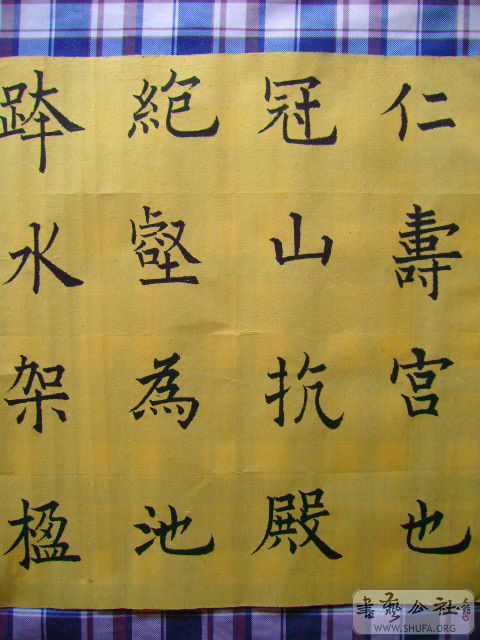 仁壽宫也
冠山抗殿
絶壑為池
跨水架楹
書藝公社
WWW.SHUFA.ORG